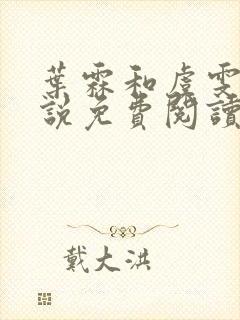 葉霖和虞雯
說免費閱讀
戴大洪